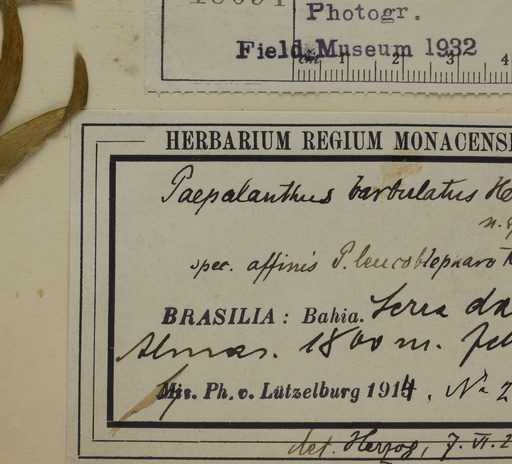 Photogr.
Field Museum 1932
cm 1 2 3 4
HERBARIUM REGIUM MONACENS
Paepalanthus barbulatus He
n. sp
spec. affinis P. leucoblepharo K
BRASILIA: Bahia. Serra da
Almas. 1800 m. feb
Mis. Ph. v. Lützelburg 1914. No 2
det. Herzog, 7. VI. 2